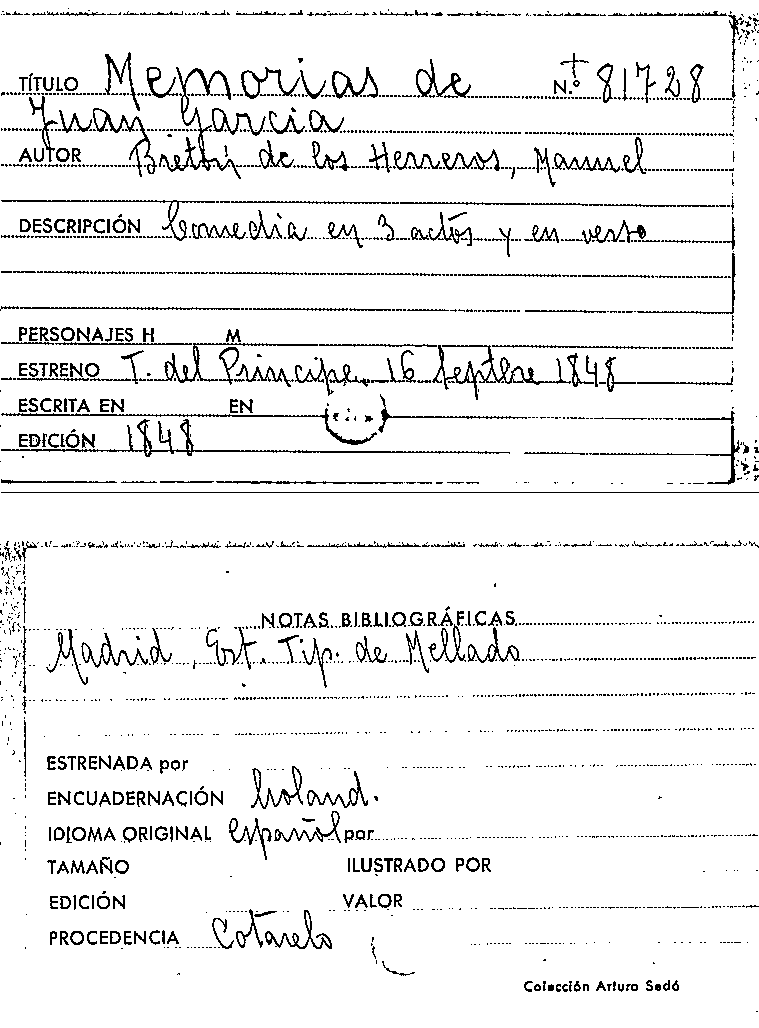 TÍTULO Memorias de N.º 81728
Juan Garcia
AUTOR Bretón de los Herreros, Manuel
DESCRIPCIÓN Comedia en 3 actos y en verso
PERSONAJES H M
ESTRENO T. del Principe. 16 Septbre 1848
ESCRITA EN EN
EDICIÓN 1848
NOTAS BIBLIOGRÁFICAS
Madrid, Est. Tip. de Mellado
ESTRENADA por
ENCUADERNACIÓN holand.
IDIOMA ORIGINAL español por
TAMAÑO ILUSTRADO POR
EDICIÓN VALOR
PROCEDENCIA Cotarelo
Colección Arturo Sedó